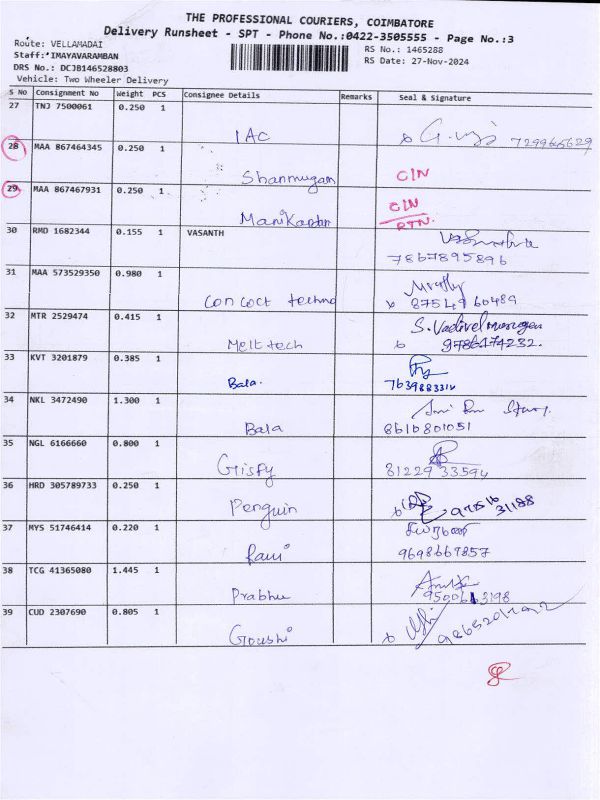 THE PROFESSIONAL COURIERS, COIMBATORE
Delivery Runsheet - SPT - Phone No.:0422-3505555 - Page No.:3
Route: VELLAMADAI
RS No.: 1465288
Staff:*IMAYAVARAMBAN
RS Date: 27-Nov-2024
DRS No.: DCJB146528803
Vehicle: Two Wheeler Delivery
S No Consignment No Weight PCS Consignee Details Remarks Seal & Signature
27 TNJ 7500061 0.250 1
IAC
28 MAA 867464345 0.250 1
Shanmugam CIN
29 MAA 867467931 0.250 1
Manikandan CIN
RTN.
30 RMD 1682344 0.155 1 VASANTH
7867895896
31 MAA 573529350 0.980 1
Concoct techno 87549 60489
32 MTR 2529474 0.415 1 S. Vadivelmurugan
Melt tech 9786174232.
33 KVT 3201879 0.385 1
Bala.
34 NKL 3472490 1.300 1
Bala 8610801051
35 NGL 6166660 0.800 1
81229 33594
36 HRD 305789733 0.250 1
Penguin 97516 31188
37 MYS 51746414 0.220 1
Ravi 9698667857
38 TCG 41365080 1.445 1
Prabhu
39 CUD 2307690 0.805 1
Goushi